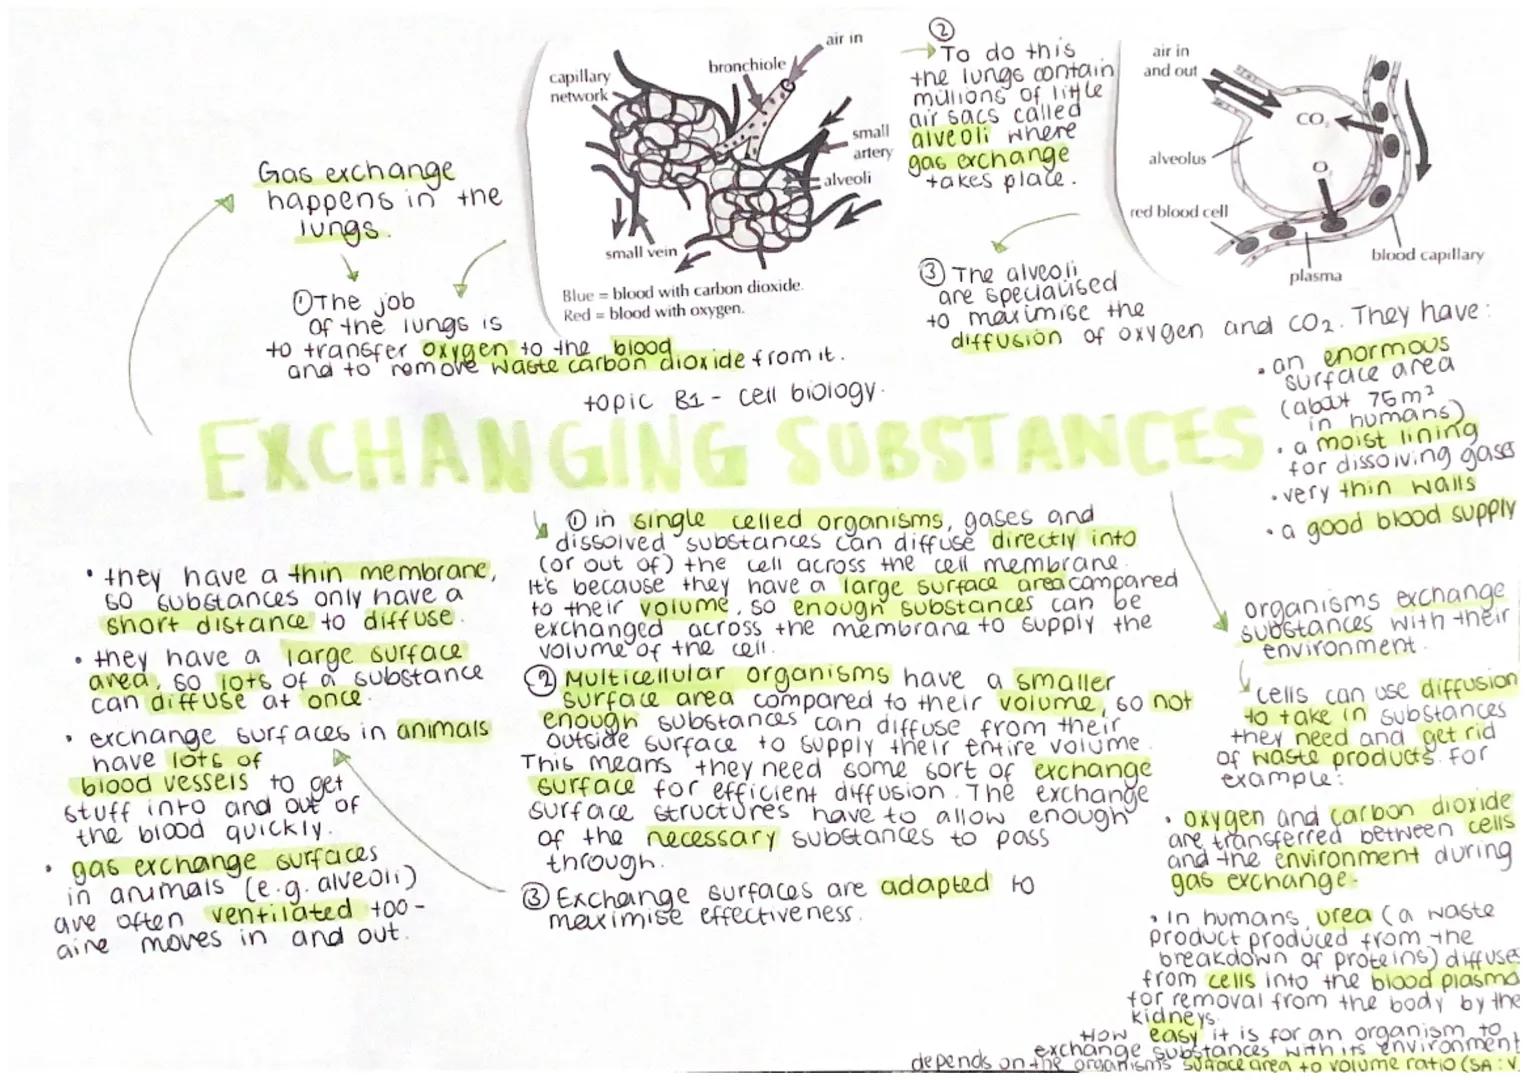 Gas exchange
happens in the
lungs.
① The job
of the lungs is
to transfer oxygen to the blood
and to remove waste carbon dioxide from it.
capillary
network
bronchiole
air in
small
artery
alveoli
small vein
Blue = blood with carbon dioxide.
Red = blood with oxygen.
②
To do this
the lungs contain
millions of little
air sacs called
alveoli where
gas exchange
takes place.
air in
and out
CO₂
alveolus
O₂
red blood cell
blood capillary
plasma
③ The alveoli
are specialised
to maximise the
diffusion of oxygen and CO2. They have:
• an enormous
surface area
(about 75m²
in humans)
• a moist lining
for dissolving gases
• very thin walls
• a good blood supply
topic B1 - cell biology.
EXCHANGING SUBSTANCES
• they have a thin membrane,
so substances only have a
short distance to diffuse.
• they have a large surface
area, so lots of a substance
can diffuse at once.
• exchange surfaces in animals
have lots of
blood vessels to get
stuff into and out of
the blood quickly.
• gas exchange surfaces
in animals (e.g. alveoli)
are often ventilated too -
aire moves in and out.
① in single celled organisms, gases and
dissolved substances can diffuse directly into
(or out of) the cell across the cell membrane.
It's because they have a large surface area compared
to their volume, so enough substances can be
exchanged across the membrane to supply the
volume of the cell.
② Multicellular organisms have a smaller
surface area compared to their volume, so not
enough substances can diffuse from their
outside surface to supply their entire volume.
This means they need some sort of exchange
surface for efficient diffusion. The exchange
surface structures have to allow enough
of the necessary substances to pass
through.
③ Exchange surfaces are adapted to
maximise effectiveness.
organisms exchange
substances with their
environment.
cells can use diffusion
to take in substances
they need and get rid
of waste products. For
example:
• oxygen and carbon dioxide
are transferred between cells
and the environment during
gas exchange.
• In humans, urea (a waste
product produced from the
breakdown of proteins) diffuses
from cells into the blood plasma
for removal from the body by the
kidneys.
How easy it is for an organism to
exchange substances with its environment
depends on the organisms surface area to volume ratio (SA:V